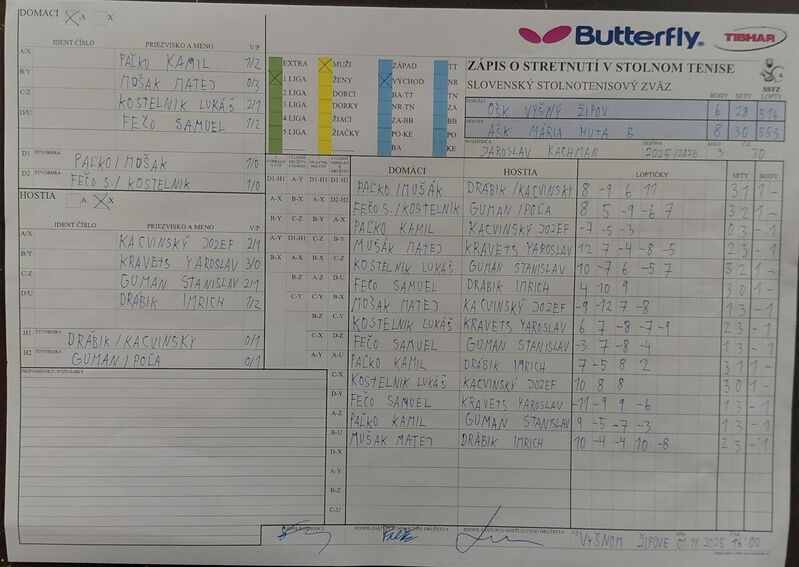 DOMACI A X
IDENT ČÍSLO PRIEZVISKO A MENO V/P
A/X PAĽKO KAMIL 1/2
B/Y MUŠAK MATEJ 0/3
C/Z KOSTELNIK LUKÁŠ 2/1
D/U FEČO SAMUEL 1/2
D1 ŠTVORHRA PAĽKO/MUŠAK 1/0
D2 FEČO S./KOSTELNIK 1/0
HOSTIA A X
IDENT ČÍSLO PRIEZVISKO A MENO V/P
A/X KACVINSKÝ JOZEF 2/1
B/Y KRAVETS YAROSLAV 3/0
C/Z GUMAN STANISLAV 2/1
D/U DRÁBIK IMRICH 1/2
H1 ŠTVORHRA DRÁBIK/KACVINSKY 0/1
H2 GUMAN/POĽA 0/1
PRIPOMIENKY, POZNÁMKY
EXTRA
1 LIGA
2 LIGA
3 LIGA
4 LIGA
5 LIGA
MUŽI
ŽENY
DORCI
DORKY
ŽIACI
ŽIAČKY
ZÁPAD
VÝCHOD
BA-TT
NR-TN
ZA-BB
PO-KE
BA
TT
NR
TN
ZA
BB
PO
KE
Butterfly TIBHAR
ZÁPIS O STRETNUTÍ V STOLNOM TENISE
SLOVENSKÝ STOLNOTENISOVÝ ZVÄZ SSTZ
BODY SETY LOPTY
DOMÁCI OŠK VYŠNÝ ŽIPOV 6 28 516
HOSTIA AŠK MÁRIA HUTA B 8 30 553
ROZHODCA JAROSLAV KACHMAN SEZÓNA 2025/2026 KOLO 3 30
DOMÁCI HOSTIA LOPTIČKY SETY BODY
D1-H1 A-Y D1-H1 D1-H1 PAĽKO/MUŠÁK DRÁBIK/KACVINSKY 8 -9 6 11 3 1 1 -
A-X B-X A-X D2-H2 FEČO S./KOSTELNIK GUMAN/POĽA 8 5 -9 -6 7 3 2 1 -
B-Y C-Z B-Y A-X PAĽKO KAMIL KACVINSKÝ JOZEF -7 -5 -3 0 3 - 1
A-Y D1-H1 C-Z B-Y MUŠÁK MATEJ KRAVETS YAROSLAV 12 7 -4 -8 -5 2 3 - 1
B-X A-X B-X C-Z KOSTELNIK LUKÁŠ GUMAN STANISLAV 10 -7 6 -5 7 3 2 1 -
B-Z A-Z D-U FEČO SAMUEL DRÁBIK IMRICH 4 10 9 3 0 1 -
C-Y C-Y B-X MUŠAK MATEJ KACVINSKÝ JOZEF -9 -12 7 -8 1 3 - 1
B-Z C-Y KOSTELNIK LUKÁŠ KRAVETS YAROSLAV 6 7 -8 -7 -9 2 3 - 1
C-X D-Z FEČO SAMUEL GUMAN STANISLAV -3 7 -8 -4 1 3 - 1
A-Y A-U PAĽKO KAMIL DRÁBIK IMRICH 7 -5 8 2 3 1 1 -
C-X KOSTELNIK LUKÁŠ KACVINSKÝ JOZEF 10 8 8 3 0 1 -
D-Y FEČO SAMUEL KRAVETS YAROSLAV -11 -9 9 -6 1 3 - 1
A-Z PAĽKO KAMIL GUMAN STANISLAV 9 -5 -7 -3 1 3 - 1
B-U MUŠAK MATEJ DRÁBIK IMRICH 10 -4 -4 10 -8 2 3 - 1
D-X
A-Y
B-Z
C-U
PODPIS ROZHODCU PODPIS ZÁSTUPCU DOMÁCEHO DRUŽSTVA PODPIS ZÁSTUPCU HOSŤUJÚCEHO DRUŽSTVA
V VYŠNOM ŽIPOVE DŇA 01.11.2025 ČAS 16:00